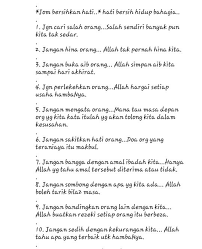 "Jom bersihkan hati..* hati bersih hidup bahagia..
.
1. Jgn cari salah orang...Salah sendiri banyak pun kita tak sedar.
.
2. Jangan hina orang... Allah tak pernah hina kita.
.
3. Jangan buka aib orang... Allah simpan aib kita sampai hari akhirat.
.
4. Jgn perlekehkan orang... Allah hargai setiap usaha hambaNya.
.
5. Jangan mengata orang...Mana tau masa depan org yg kita kata itulah yg akan tolong kita dalam kesusahan.
.
6. Jangan sakitkan hati orang...Doa org yang teraniaya itu makbul.
.
7. Jangan bangga dengan amal ibadah kita...Hanya Allah yg tahu amal tersebut diterima atau tidak.
.
8. Jangan sombong dengan apa yg kita ada... Allah boleh tarik bila2 masa.
.
9. Jangan bandingkan orang lain dengan kita... Allah buatkan rezeki setiap orang itu berbeza.
.
10. Jangan sedih dengan kekurangan kita... Allah tahu apa yang terbaik utk hambaNya.